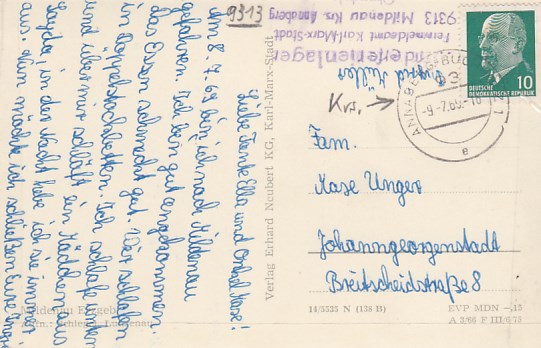 9313
Liebe Tante Ella und Onkel Kase!
Am 8.7.69 bin ich nach Mildenau
gefahren. Ich bin gut angekommen.
das Essen schmeckt gut. Wir schlafen
in Doppelstockbetten. Ich schlafe unten
und über mir schläft ein Mädchen aus
Sayda, in der Nacht habe ich sie immer
aus. Nun möchte ich schließen Eure
Mildenau Erzgeb.
Verlag Erhard Neubert KG, Karl-Marx-Stadt
Kinderferienlager
Fernmeldeamt Karl-Marx-Stadt
9313 Mildenau Krs. Annaberg
Ingrid Müller
Krs. →
ANNABERG-BUCH
-9.7.69.-18
e
DEUTSCHE
DEMOKRATISCHE REPUBLIK
10
Fam.
Kase Unger
Johanngeorgenstadt
Breitscheidstraße 8
14/5535 N (138 B)
EVP MDN -,15